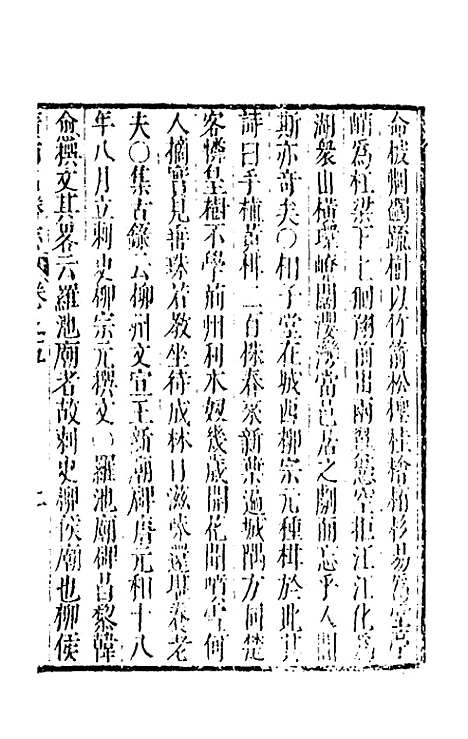 命披刜蠲疏樹以竹箭松檉桂檜柏杉易爲堂亭
峭爲杠梁下上徊翔前出兩翼憑空拒江江化爲
湖衆山橫環嶛闊瀴灣當邑居之劇而忘乎人間
斯亦奇矣○柑子堂在城西柳宗元種柑於此其
詩曰手種黃柑二百株春來新葉遍城隅方同楚
客憐皇樹不學荊州利木奴幾歲開花聞噴雪何
人摘實見垂珠若教坐待成林日滋味還堪養老
夫○集古錄云柳州文宣王新廟碑唐元和十八
年八月立刺史柳宗元撰文○羅池廟碑昌黎韓
愈撰文其畧云羅池廟者故刺史柳侯廟也柳侯
卷之五